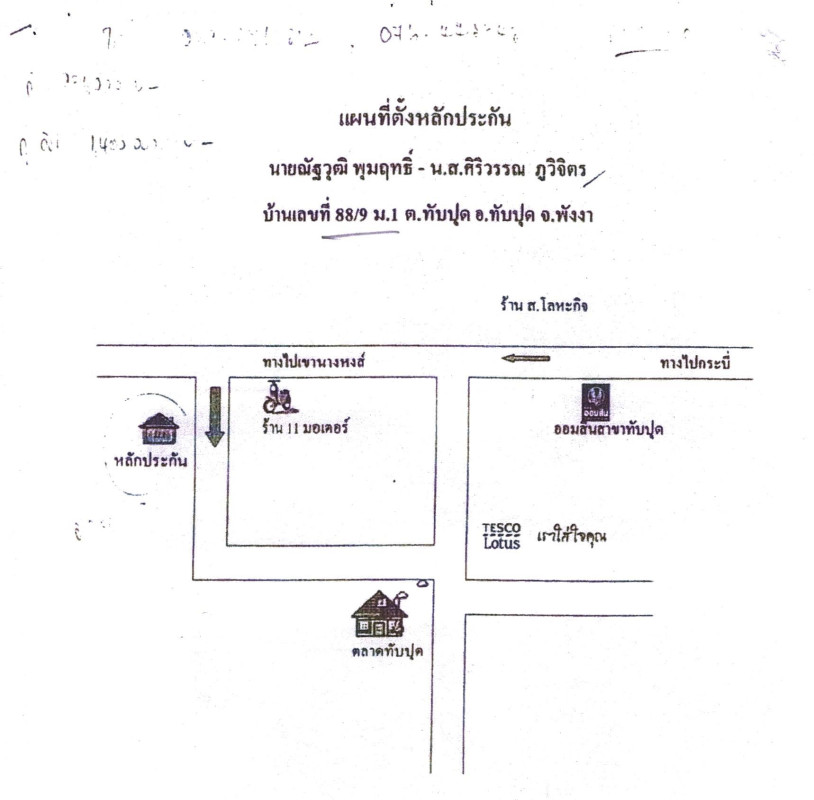 แผนที่ตั้งหลักประกัน
นายณัฐวุฒิ พุมฤทธิ์ - น.ส.ศิริวรรณ ภูวิจิตร
บ้านเลขที่ 88/9 ม.1 ต.ทับปุด อ.ทับปุด จ.พังงา
ร้าน ส.โลหะกิจ
ทางไปเขานางหงส์
ทางไปกระบี่
ร้าน 11 มอเตอร์
ออมสิน
ออมสินสาขาทับปุด
หลักประกัน
TESCO
Lotus
เราใส่ใจคุณ
ตลาดทับปุด